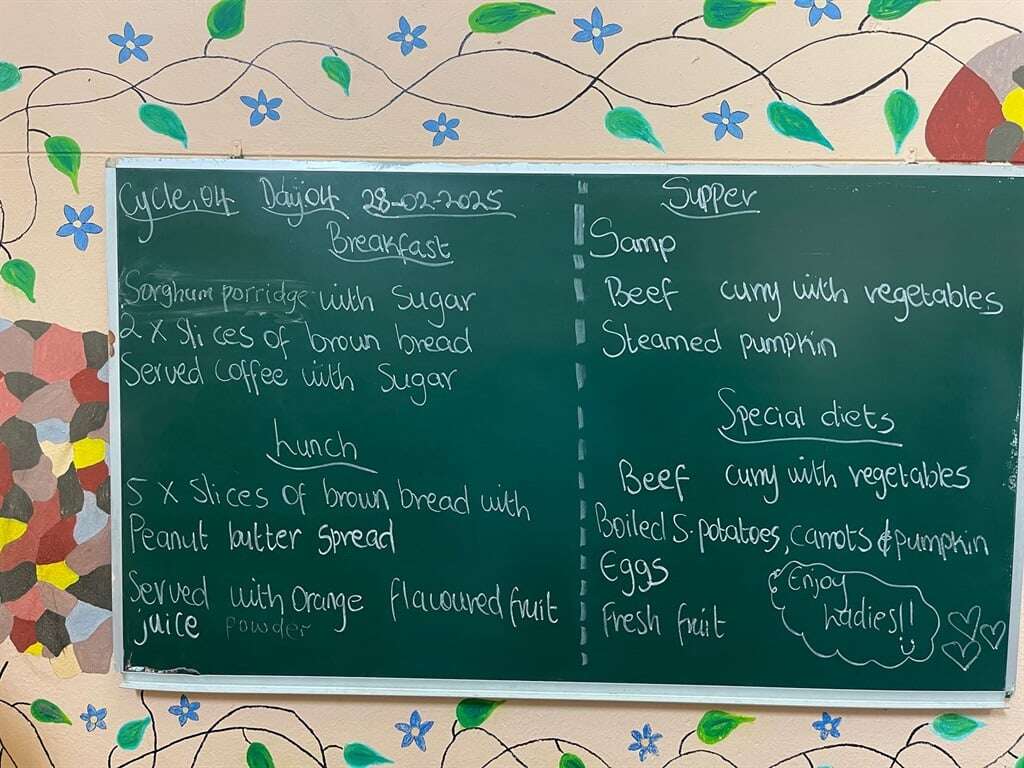 Cycle.04 Day04 28-02-2025
Breakfast
Sorghum porridge with Sugar
2 x Slices of brown bread
Served Coffee with Sugar
Lunch
5 x Slices of brown bread with
Peanut butter spread
Served with Orange flavoured fruit
juice powder
Supper
Samp
Beef curry with vegetables
Steamed pumpkin
Special diets
Beef curry with vegetables
Boiled S. potatoes, carrots & pumpkin
Eggs
Fresh fruit
Enjoy
Ladies!!